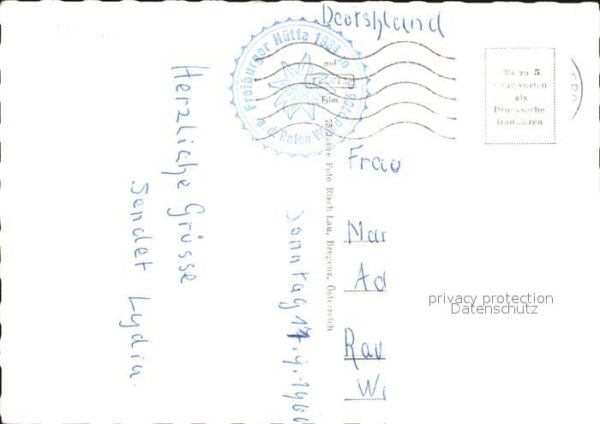 Deutschland
Freiburger Hütte
auf
Film
Bis zu 5
Grussworten
als
Drucksache
frankieren
Herzliche Grüsse
sendet Lydia.
Sonntag
75 Jahre Foto Risch-Lau, Bregenz, Österreich
Frau
Mar
Ad
Rav
Wi
privacy protection
Datenschutz